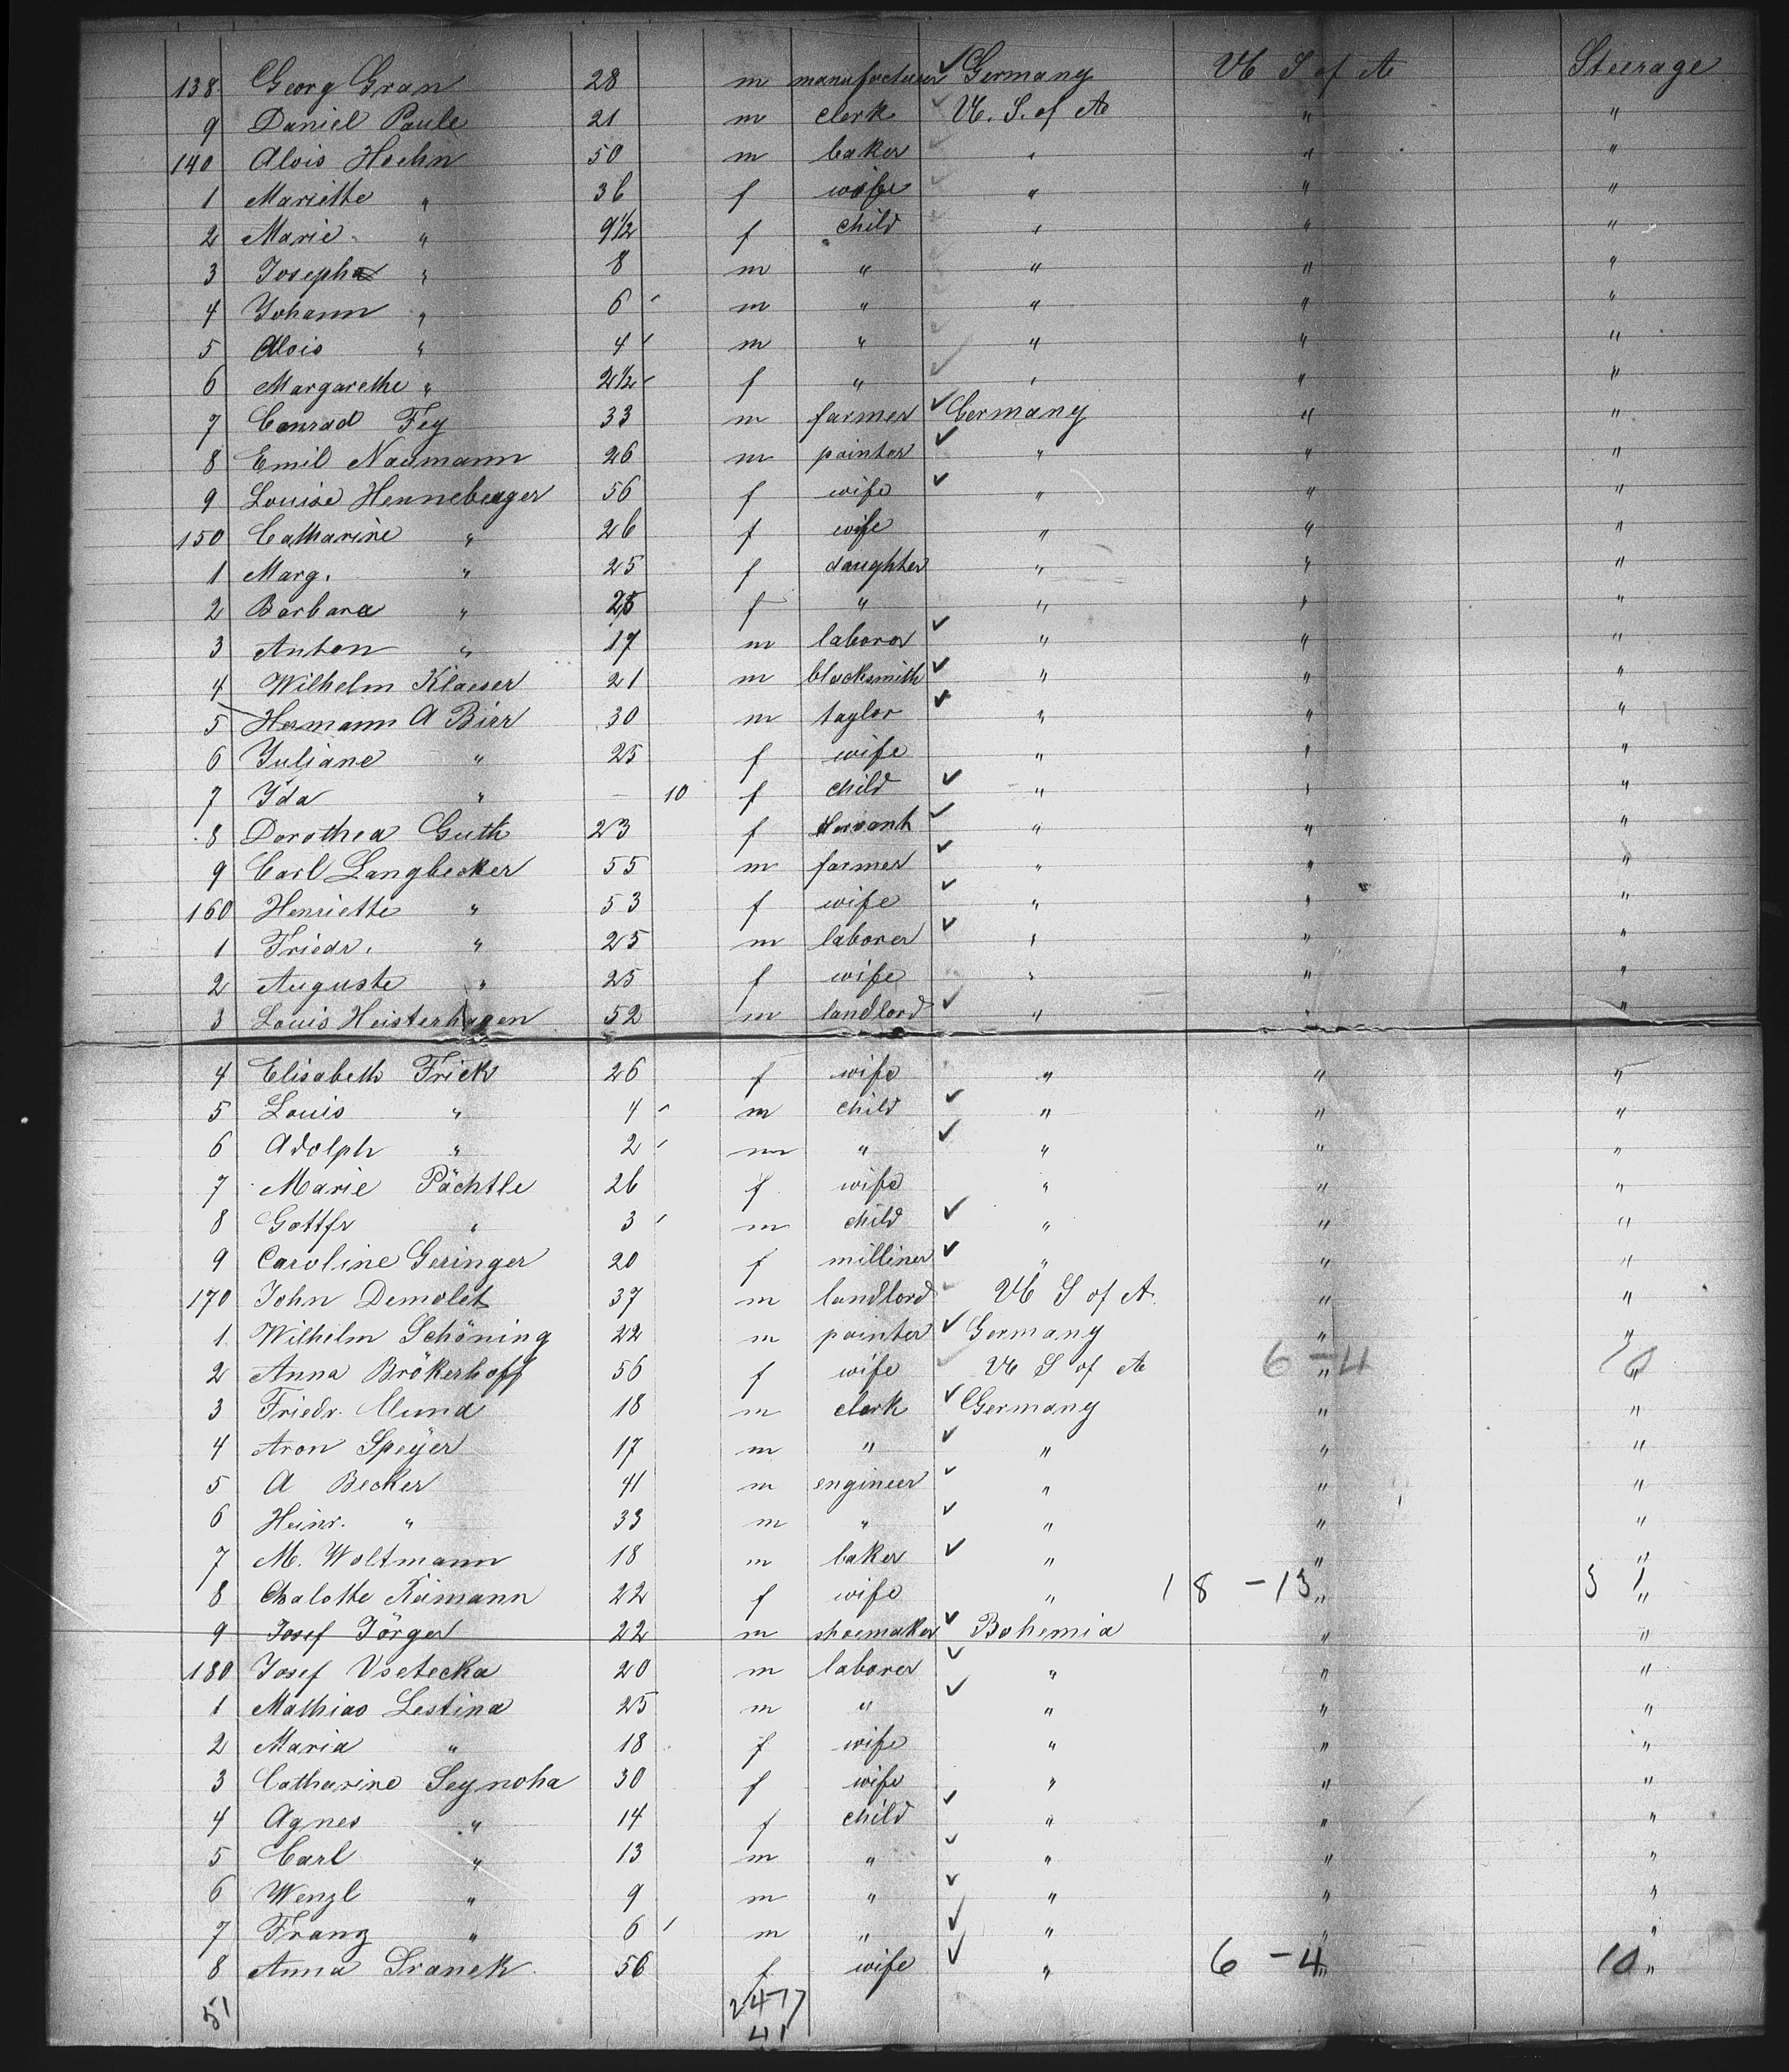 138 Georg Gran 28 m manufacturer ✓ Germany U S of A Steerage
9 Daniel Paule 21 m clerk ✓ U. S. of A " "
140 Alois Hoehn 50 m baker ✓ " " "
1 Mariette " 36 f wife ✓ " " "
2 Marie " 9 1/2 f child " " "
3 Joseph " 8 m " " " "
4 Johann " 6 m " " " "
5 Alois " 4 m " ✓ " " "
6 Margarethe " 2 1/2 f " ✓ " " "
7 Conrad Fey 33 m farmer ✓ Germany " "
8 Emil Naumann 26 m painter ✓ " " "
9 Louise Henneberger 56 f wife ✓ " " "
150 Catharine " 26 f wife " " "
1 Marg. " 25 f daughter " " "
2 Barbara " 25 f " " " "
3 Anton " 17 m laboror ✓ " " "
4 Wilhelm Klaeser 21 m blacksmith ✓ " " "
5 Hermann A Bier 30 m taylor ✓ " " "
6 Juliane " 25 f wife " " "
7 Ida " – 10 f child ✓ " " "
8 Dorothea Guth 23 f servant ✓ " " "
9 Carl Langbecker 55 m farmer ✓ " " "
160 Henriette " 53 f wife ✓ " " "
1 Friedr. " 25 m laborer ✓ " " "
2 Auguste " 25 f wife " " "
3 Louis Heisterhagen 52 m landlord ✓ " " "
4 Elisabeth Frick 26 f wife " " "
5 Louis " 4 m child ✓ " " "
6 Adolph " 2 m " ✓ " " "
7 Marie Pächtle 26 f wife " " "
8 Gottfr " 3 m child ✓ " " "
9 Caroline Geringer 20 f milliner ✓ " " "
170 John Demolet 37 m landlord ✓ U S of A. " "
1 Wilhelm Schöning 22 m painter ✓ Germany " "
2 Anna Brökerhoff 56 f wife ✓ U S of A 6 – 4 " "
3 Friedr. Mund 18 m clerk ✓ Germany " "
4 Aron Speyer 17 m " ✓ " " "
5 A Becker 41 m engineer ✓ " " "
6 Heinr. " 33 m " ✓ " " "
7 M. Woltmann 18 m baker ✓ " " "
8 Chalotte Reimann 22 f wife " 18 – 13 " "
9 Josef Jörger 22 m shoemaker ✓ Bohemia " "
180 Josef Vsetecka 20 m laborer ✓ " " "
1 Mathias Lestina 25 m " ✓ " " "
2 Maria " 18 f wife " " "
3 Catharine Seynoha 30 f wife " " "
4 Agnes " 14 f child ✓ " " "
5 Carl " 13 m " ✓ " " "
6 Wenzl " 9 m " ✓ " " "
7 Franz " 6 m " ✓ " " "
8 Anna Sranek 56 f wife ✓ " 6 – 4 " 10 "
51 247
41